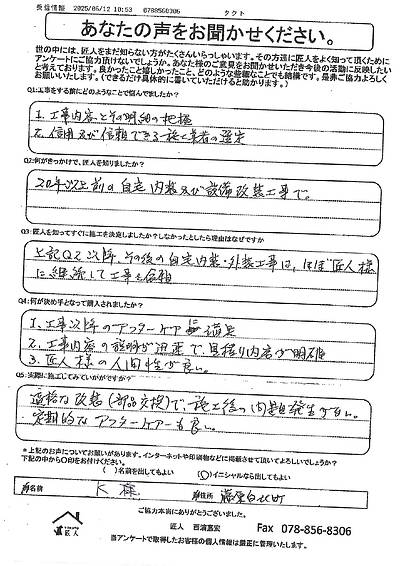 受信情報 2025/05/12 10:53 0788560306 タクト
あなたの声をお聞かせください。
世の中には、匠人をまだ知らない方がたくさんいらっしゃいます。その方達に匠人をよく知って頂くために
アンケートにご協力頂けないでしょうか。あなた様のご意見をお聞かせいただき今後の活動に反映したい
と考えております。良かったこと嬉しかったこと、どのような些細なことでも結構です。是非ご協力よろしく
お願いいたします。(できるだけ具体的に書いていただけると助かります。)
Q1:工事をする前にどのようなことで悩んでましたか?
1. 工事内容とその明細の把握
2. 信用及び信頼できる施工業者の選定
Q2:何がきっかけで、匠人を知りましたか?
20年以上前の自宅内装及び設備改装工事で。
Q3:匠人を知ってすぐに施工を決定しましたか?しなかったとしたら理由はなぜですか
上記Q2以降、その後の自宅内装・外装工事は、ほぼ匠人様
に継続して工事を依頼
Q4:何が決め手となって購入されましたか?
1. 工事以降のアフターケアに満足
2. 工事内容の説明が迅速で、見積り内容が明確
3. 匠人様の人間性が良い。
Q5:実際に施工してみていかがですか?
適格な改装(部品交換)で、施工後の問題発生がない。
定期的なアフターケアーも良い。
*上記のお声についてお願いがあります。インターネットや印刷物などに掲載させて頂いてよろしいでしょうか?
下記の中から○印をお付けください。
( )名前を出してもよい (○)イニシャルなら出してもよい
お名前 K 様 お住所
ご協力本当にありがとうございました。
匠人 西濱嘉宏 Fax 078-856-8306
当アンケートで取得したお客様の個人情報は厳正に管理いたします。